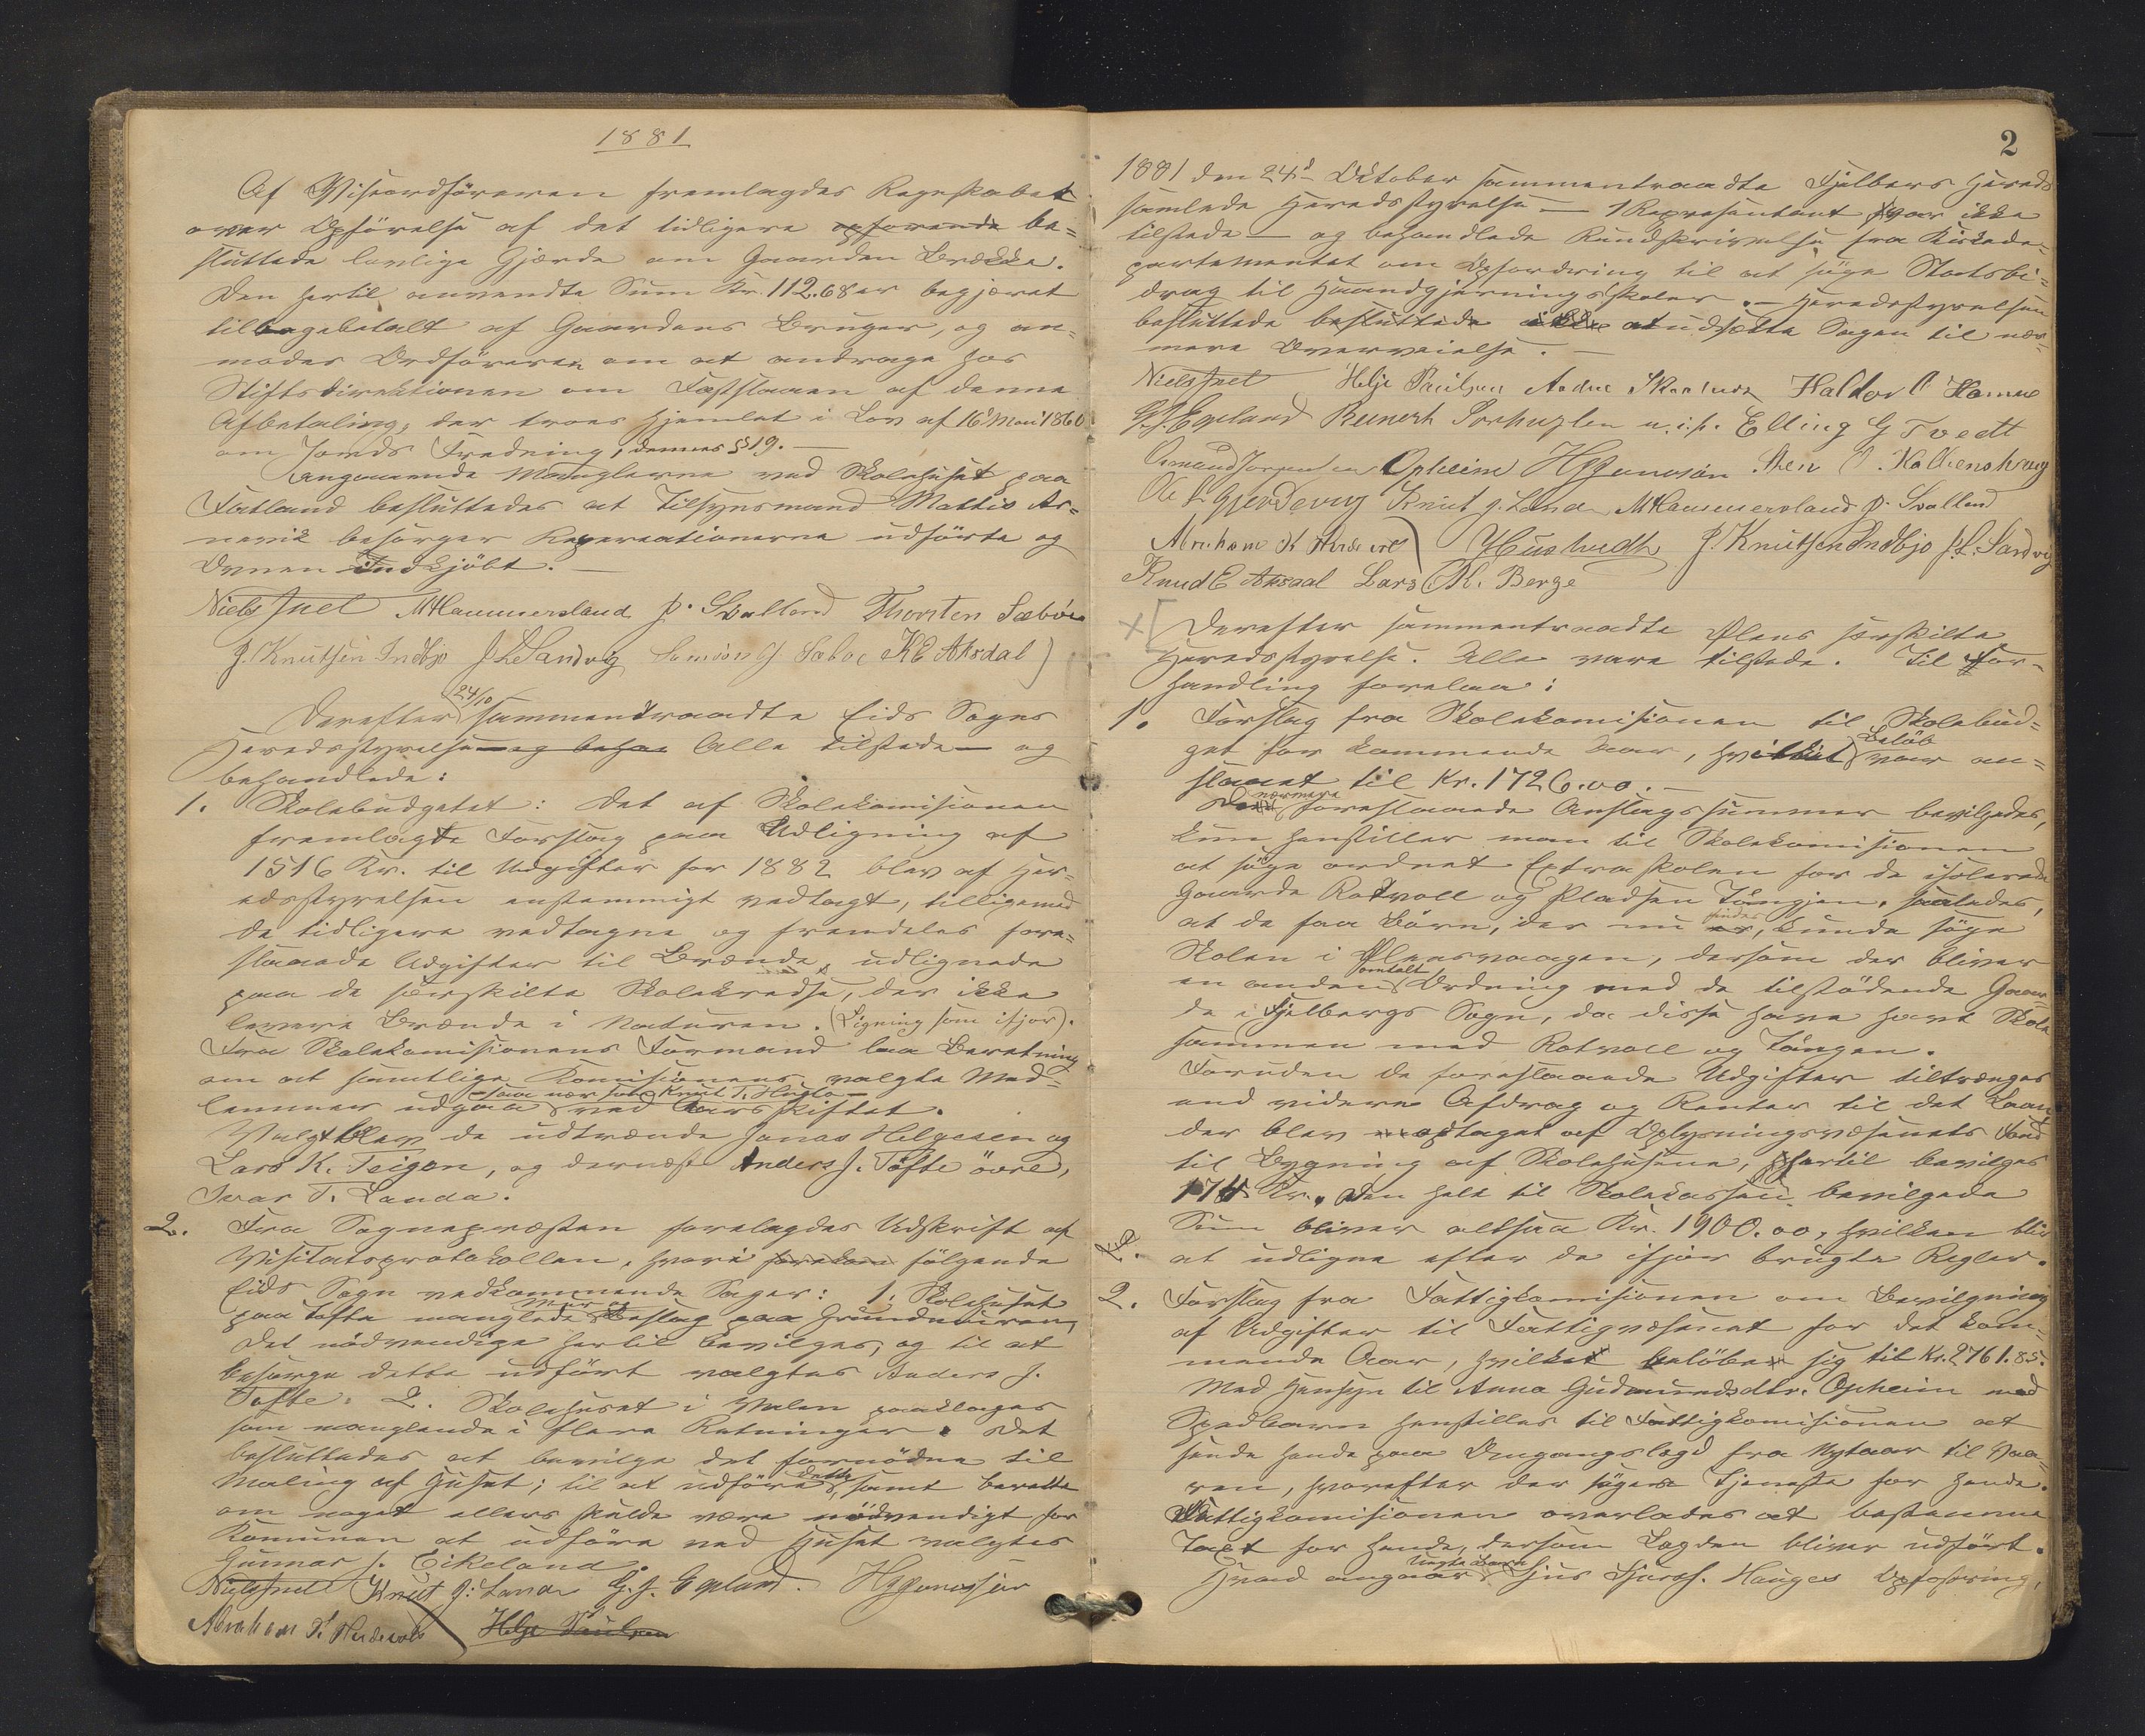 1881
Af Viseordföreren fremlagdes Regnskabet
over Opförelse af det tidligere opforende be=
sluttede lovlige Gjærde om Gaarden Brekke.
Den hertil anvendte Sum Kr. 112.68 er begjæret
tilbagebetalt af Gaardens Bruger, og an=
modes Ordföreren om at andrage hos
Stiftsdirektionen om Fastslaaen af denne
Afbetaling, der troes hjemlet i Lov af 16 Mai 1860
om Jords Fredning, dennes § 19. —
Angaaende Manglerne ved Skolehuset paa
Fatland besluttedes at Tilsynsmand Mattis Ar=
nevik besörger Reperationerne udförte og
Ovnen Indkjöbt. —
Niels Juel MHammersland P. Svalland Thorsten Sæböe
J. Knutsen Indbjo J L Sandvig Samson J Sæboe K E Aksdal
24/10
Derefter sammentraadte Eids Sogns
Heredsstyrelse — og behan Alle tilstede — og
behandlede:
1. Skolebudgetet: Det af Skolekomisionen
fremlagte Forslag paa Udligning af
1516 Kr. til Udgifter for 1882 blev af Her=
edsstyrelsen enstemmigt vedtagt, tilligemed
de tidligere vedtagne og fremdeles fore=
slaaede Udgifter til Brænde, udlignede
paa de særskilte Skolekredse, der ikke
levere Brænde i Naturen. (Ligning som ifjor).
Fra Skolekomisionens Formand laa Beretning
om at samtlige Komisionens valgte Med=
saa nær som Knut T. Hugla —
lemmer udgaa ved Aarsskiftet.
Valgt blev de udtrædende Jonas Helgesen og
Lars K. Teigen, og dernæst Anders J. Tofte övre,
Ivar T. Landa.
2. Fra Sognepræsten forelagdes Udskrift af
Visitatsprotokollen, hvori forekom fölgende
Eids Sogn vedkommende Sager: 1. Skolehuset
paa Tofte manglede Beslag paa Grundmuren,
Det nödvendige hertil bevilges, og til at
besörge dette udfört valgtes Anders J.
Tofte. 2. Skolehuset i Valen paaklages
som manglende i flere Retninger. Det
besluttedes at bevilge det fornödne til
Maling af Huset; til at udföre dette, samt berette
om noget ellers skulde være nödvendigt for
Komunen at udföre ved Huset valgtes
Gunnar J. Eikeland.
Niels Juel Knut J. Landa G. J. Egeland. H Gunarsson
Abraham K. Helge Paulsen
2
1881 den 24d Oktober sammentraadte Fjelbergs Hereds
samlede Heredsstyrelse — 1 Representant var ikke
tilstede — og behandlede Rundskrivelse fra Kirkede=
partementet om Opfordring til at söge Statsbi=
drag til Haandgjerningsskoler. — Heredsstyrelsen
besluttede besluttede ikke at udsætte Sagen til nær=
mere Overveielse. —
Niels Juel Helje Paulsen Andre Skarlund Haldor O Hamre
G. J. Egeland Reinert m. i. p. Elling G Tvedt
Osmund Opheim H Gunarson Sten O. Kalkenshaug
Ole L. Gjerdevig Knut J. Landa MHammersland P. Svalland
Abraham K Husstvedt J. Knutsen Indbjo J. L. Sandvig
Knud E Aksdal Lars M. Berge
Derefter sammentraadte Ølens særskilte
Heredsstyrelse. Alle vare tilstede. Til For=
handling forelaa:
1. Forslag fra Skolekomisionen til Skolebud=
get for kommende Aar, hvilket Beløb var an=
slaaet til Kr. 1726.00. —
De nærmere foreslaaede Anslagssummer bevilgedes,
kun henstiller man til Skolekomisionen
at söge ordnet Extraskolen for de isolerede
Gaarde Rotvoll og Pladsen Tången, saaledes,
at de faa Börn, der nu findes, kunde söge
Skolen i Ølensvaagen, dersom der bliver
en anden omtalt Ordning med de tilstödende Gaar=
de i Fjelbergs Sogn, da disse have havt Skole
sammen med Rotvoll og Tången.
Foruden de foreslaaede Udgifter tiltrænges
end videre Afdrag og Renter til det Laan,
der blev optaget af Oplysningsvæsenets Fond
til Bygning af Skolehusene, hertil bevilges
174 Kr. Den hele til Skolekassen bevilgede
Sum bliver altsaa Kr. 1900.00, hvilken blir
at udligne efter de ifjor brugte Regler.
2. Forslag fra Fattigkomisionen om Bevilgning
af Udgifter til Fattigvæsenet for det kom=
mende Aar, hvilket belöber sig til Kr. 2761.85.
Med Hensyn til Anna Gudmundsdtr. Opheim med
Spædbarn henstilles til Fattigkomisionen at
sende hende paa Omgangslægd fra Nytaar til Vaa=
ren, hvorefter der söges Tjeneste for hende.
Fattigkomisionen overlades at bestemme
Taxt for hende, dersom Lægden bliver udfört.
Hvad angaar Hauges Opfostring,